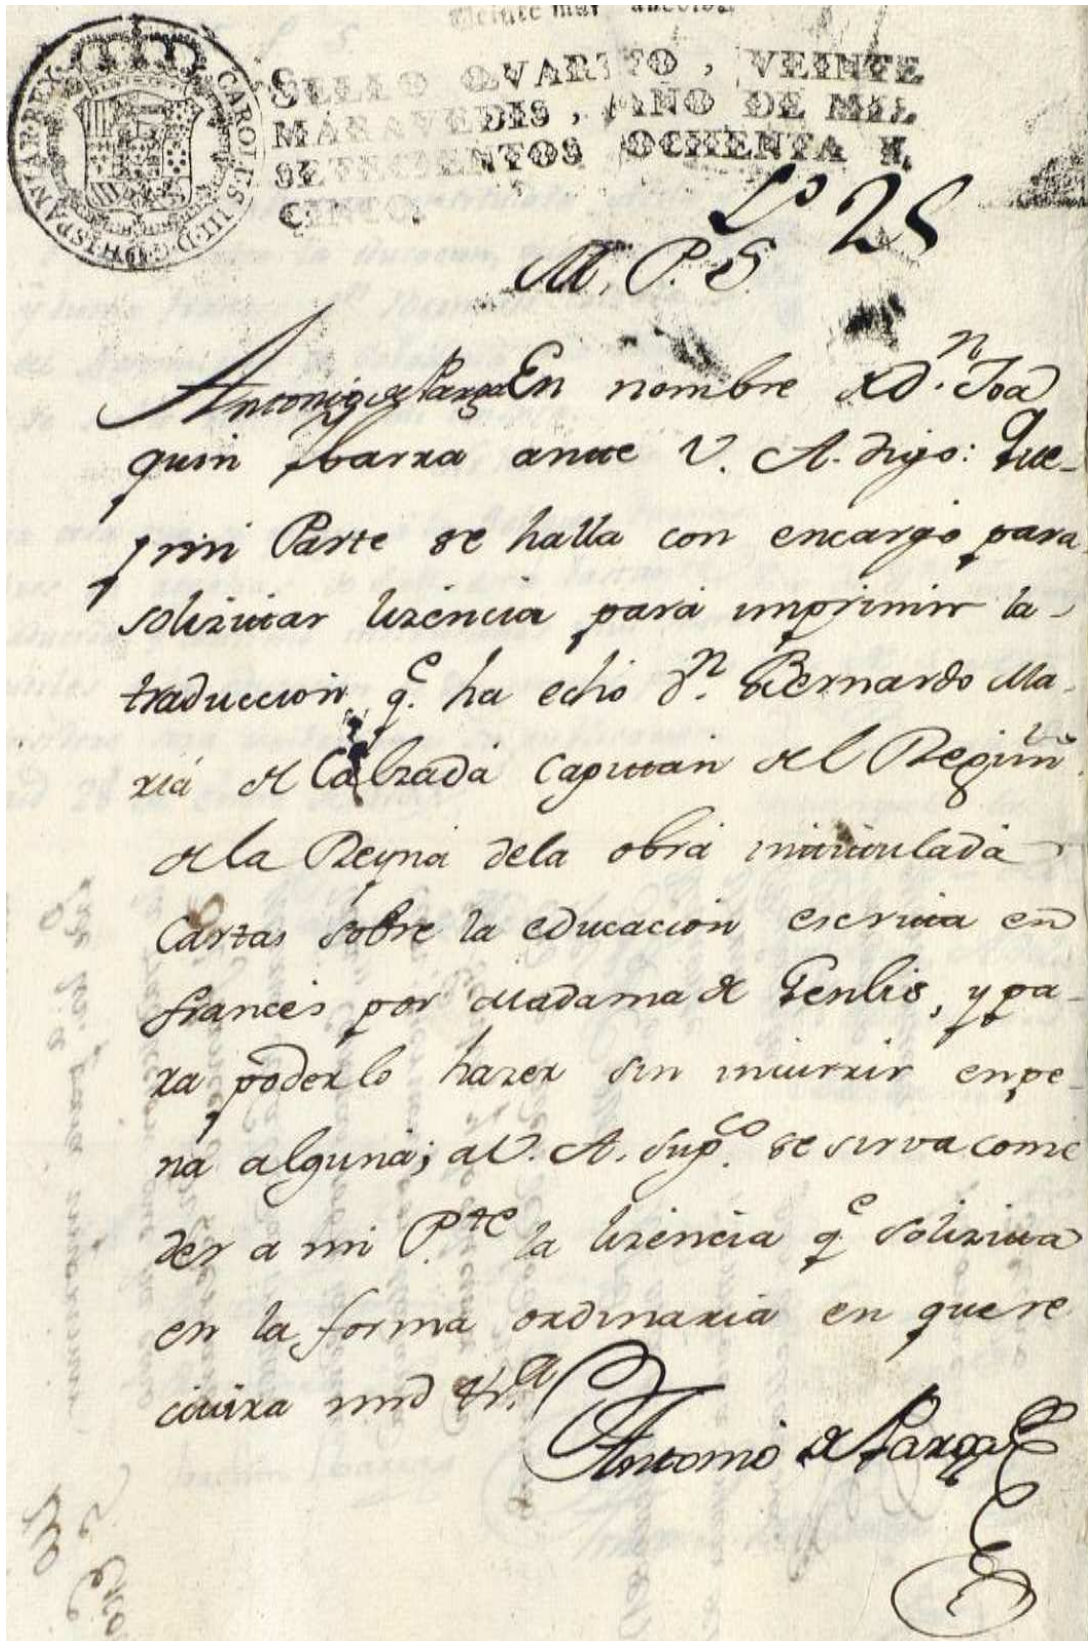 Veinte mar
CAROLUS III D G HISPANIAR REX
SELLO QVARTO, VEINTE
MARAVEDIS, AÑO DE MIL
SETECIENTOS OCHENTA Y
CINCO.
Lº 28
M. P. S.
Antonio de Parga En nombre de Dn. Joa
quin Ybarra ante V. A. digo: Que
mi Parte se halla con encargo para
solizitar lizencia para imprimir la
traduccion qe. ha echo Dn. Bernardo Ma
ria de Calzada Capitan del Regimto
de la Reyna de la obra intitulada
Cartas sobre la educacion escrita en
frances por Madama de Genlis, y pa
ra poderlo hazer sin incurrir en pe
na alguna; a V. A. Supco. se sirva conce
der a mi Pte. la lizencia qe. solizita
en la forma ordinaria en que re
civira mrd &a.
Antonio de Parga